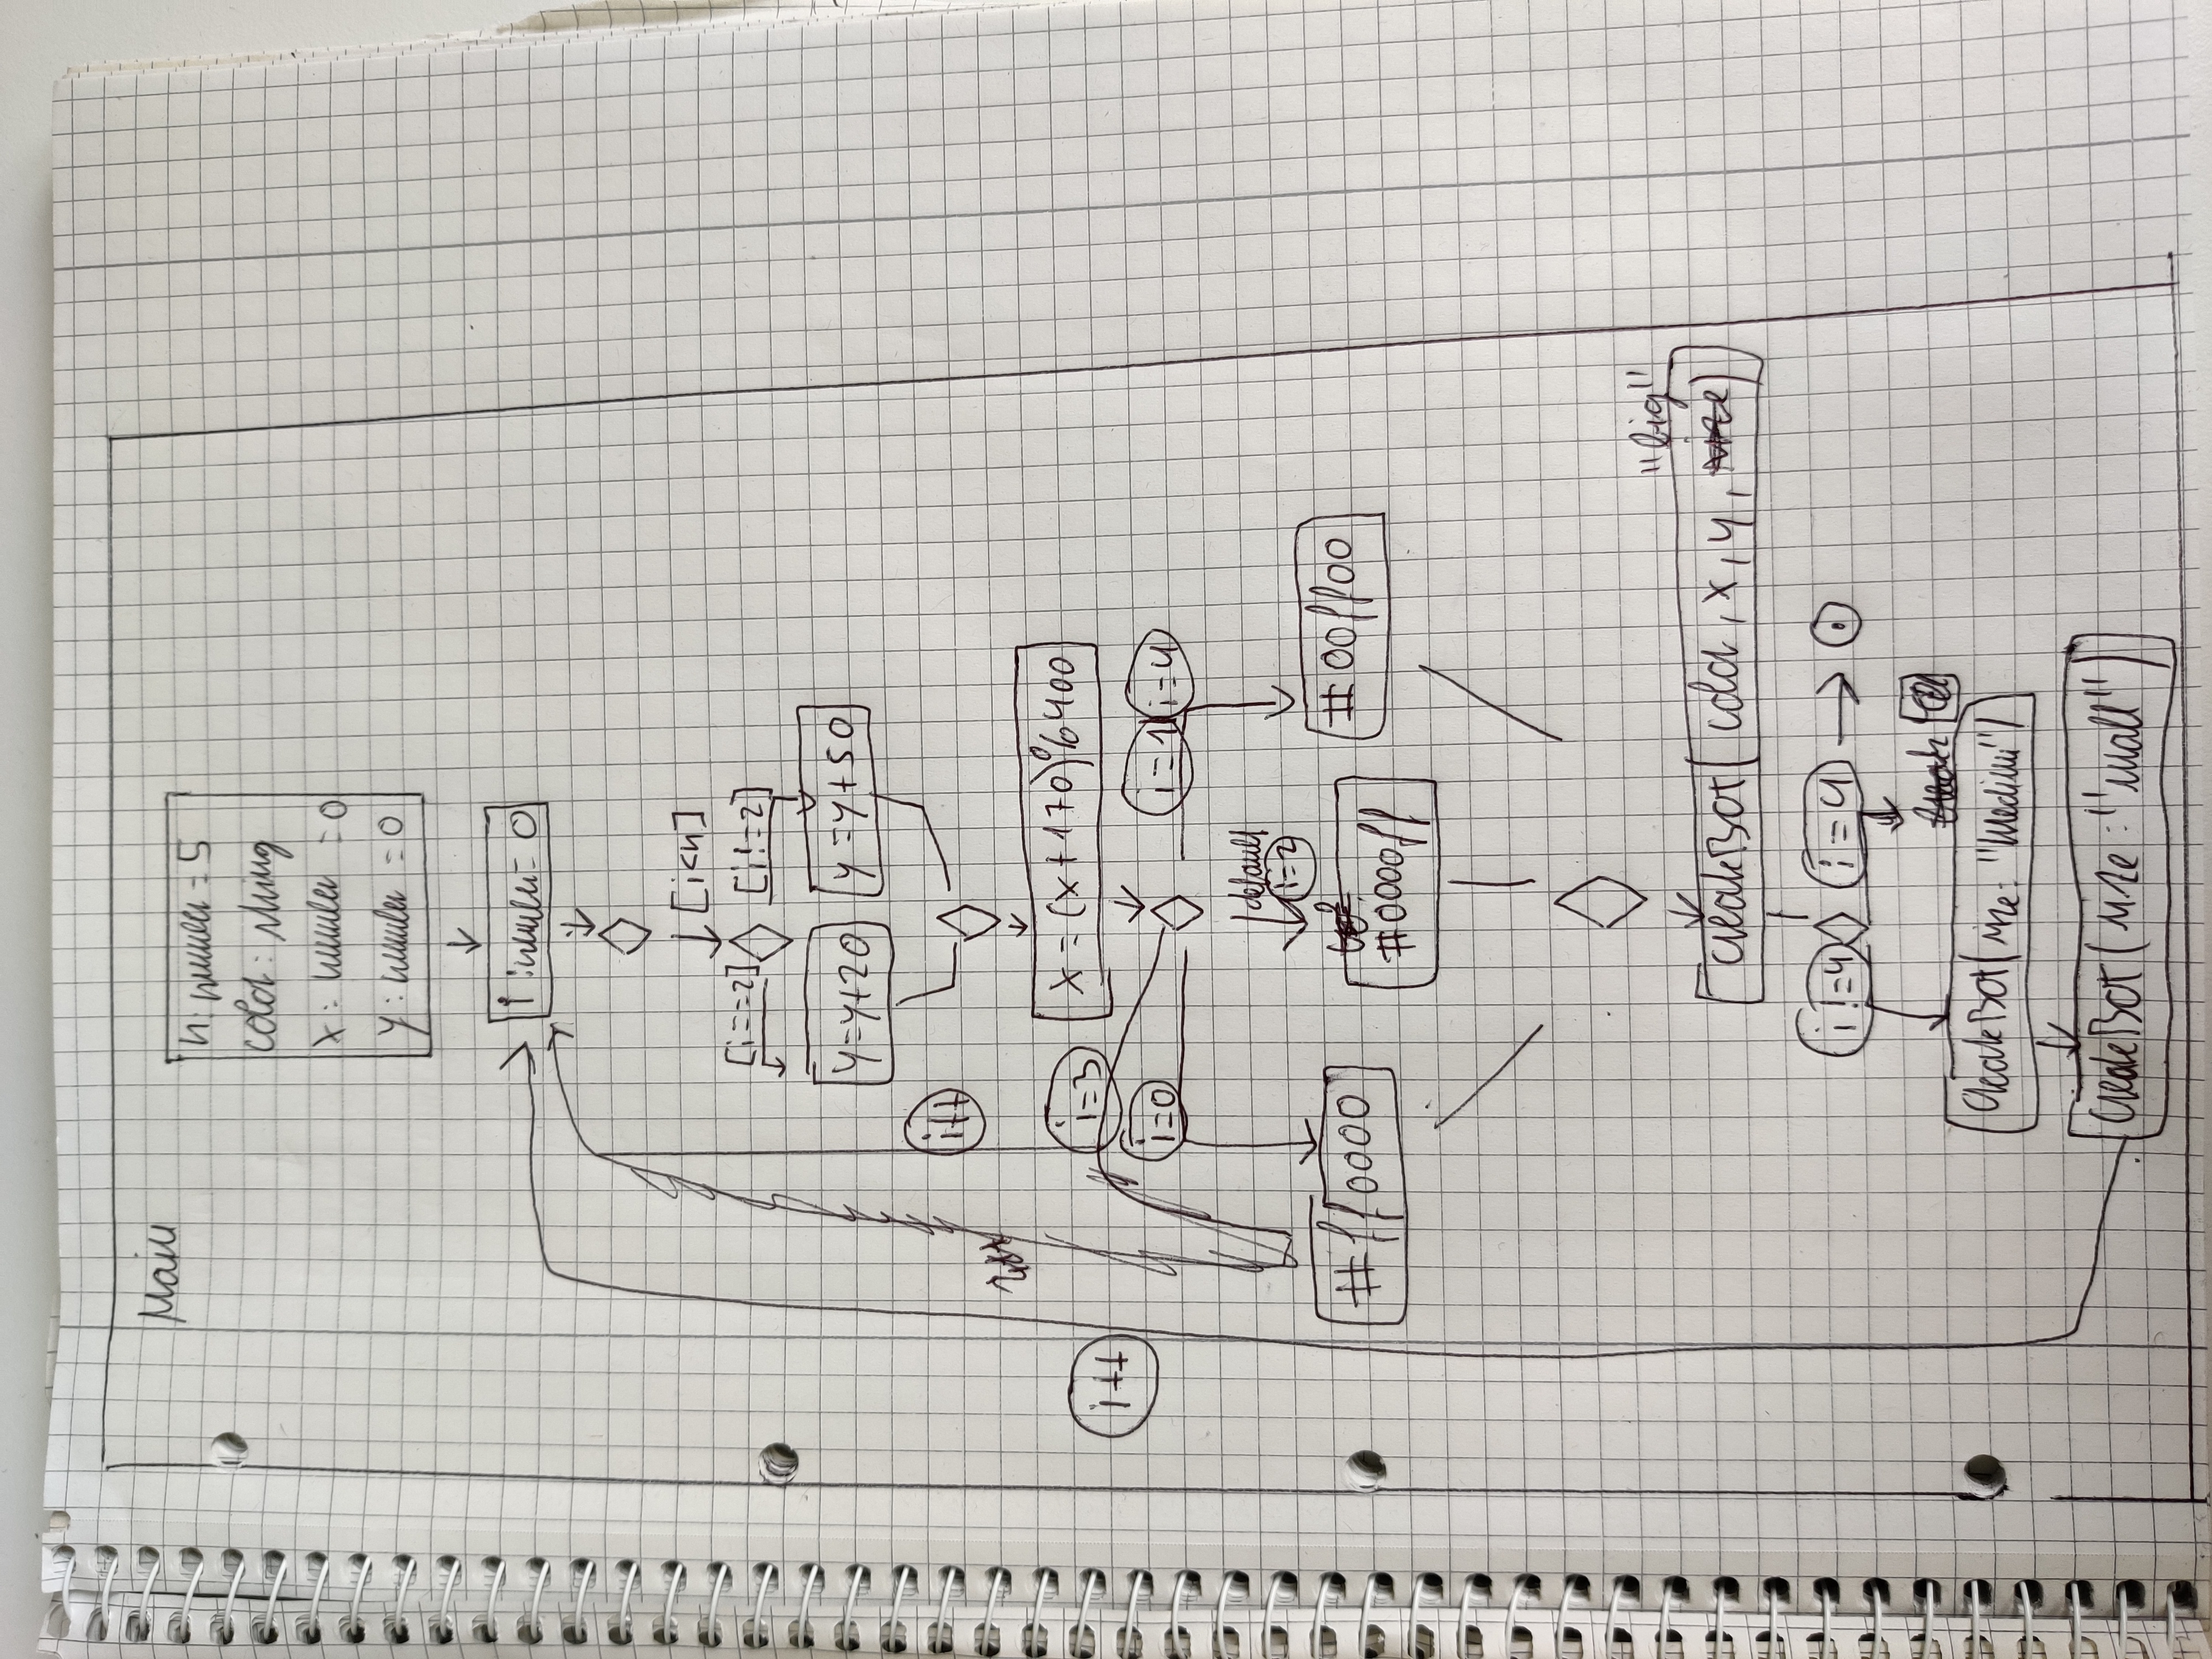 Main
n: number = 5
color: string
x: number = 0
y: number = 0
i: number = 0
[i<n]
[i==2] [i!=2]
y=y+20 y=y+50
i++
x=(x+170)%400
i++
i=3
i=0 i=1 i=4
default
i=2
#ff0000 #0000ff #00ff00
"big"
createBot(color, x, y, size)
i!=4 i=4
break
createBot(size: "medium")
createBot(size: "small")